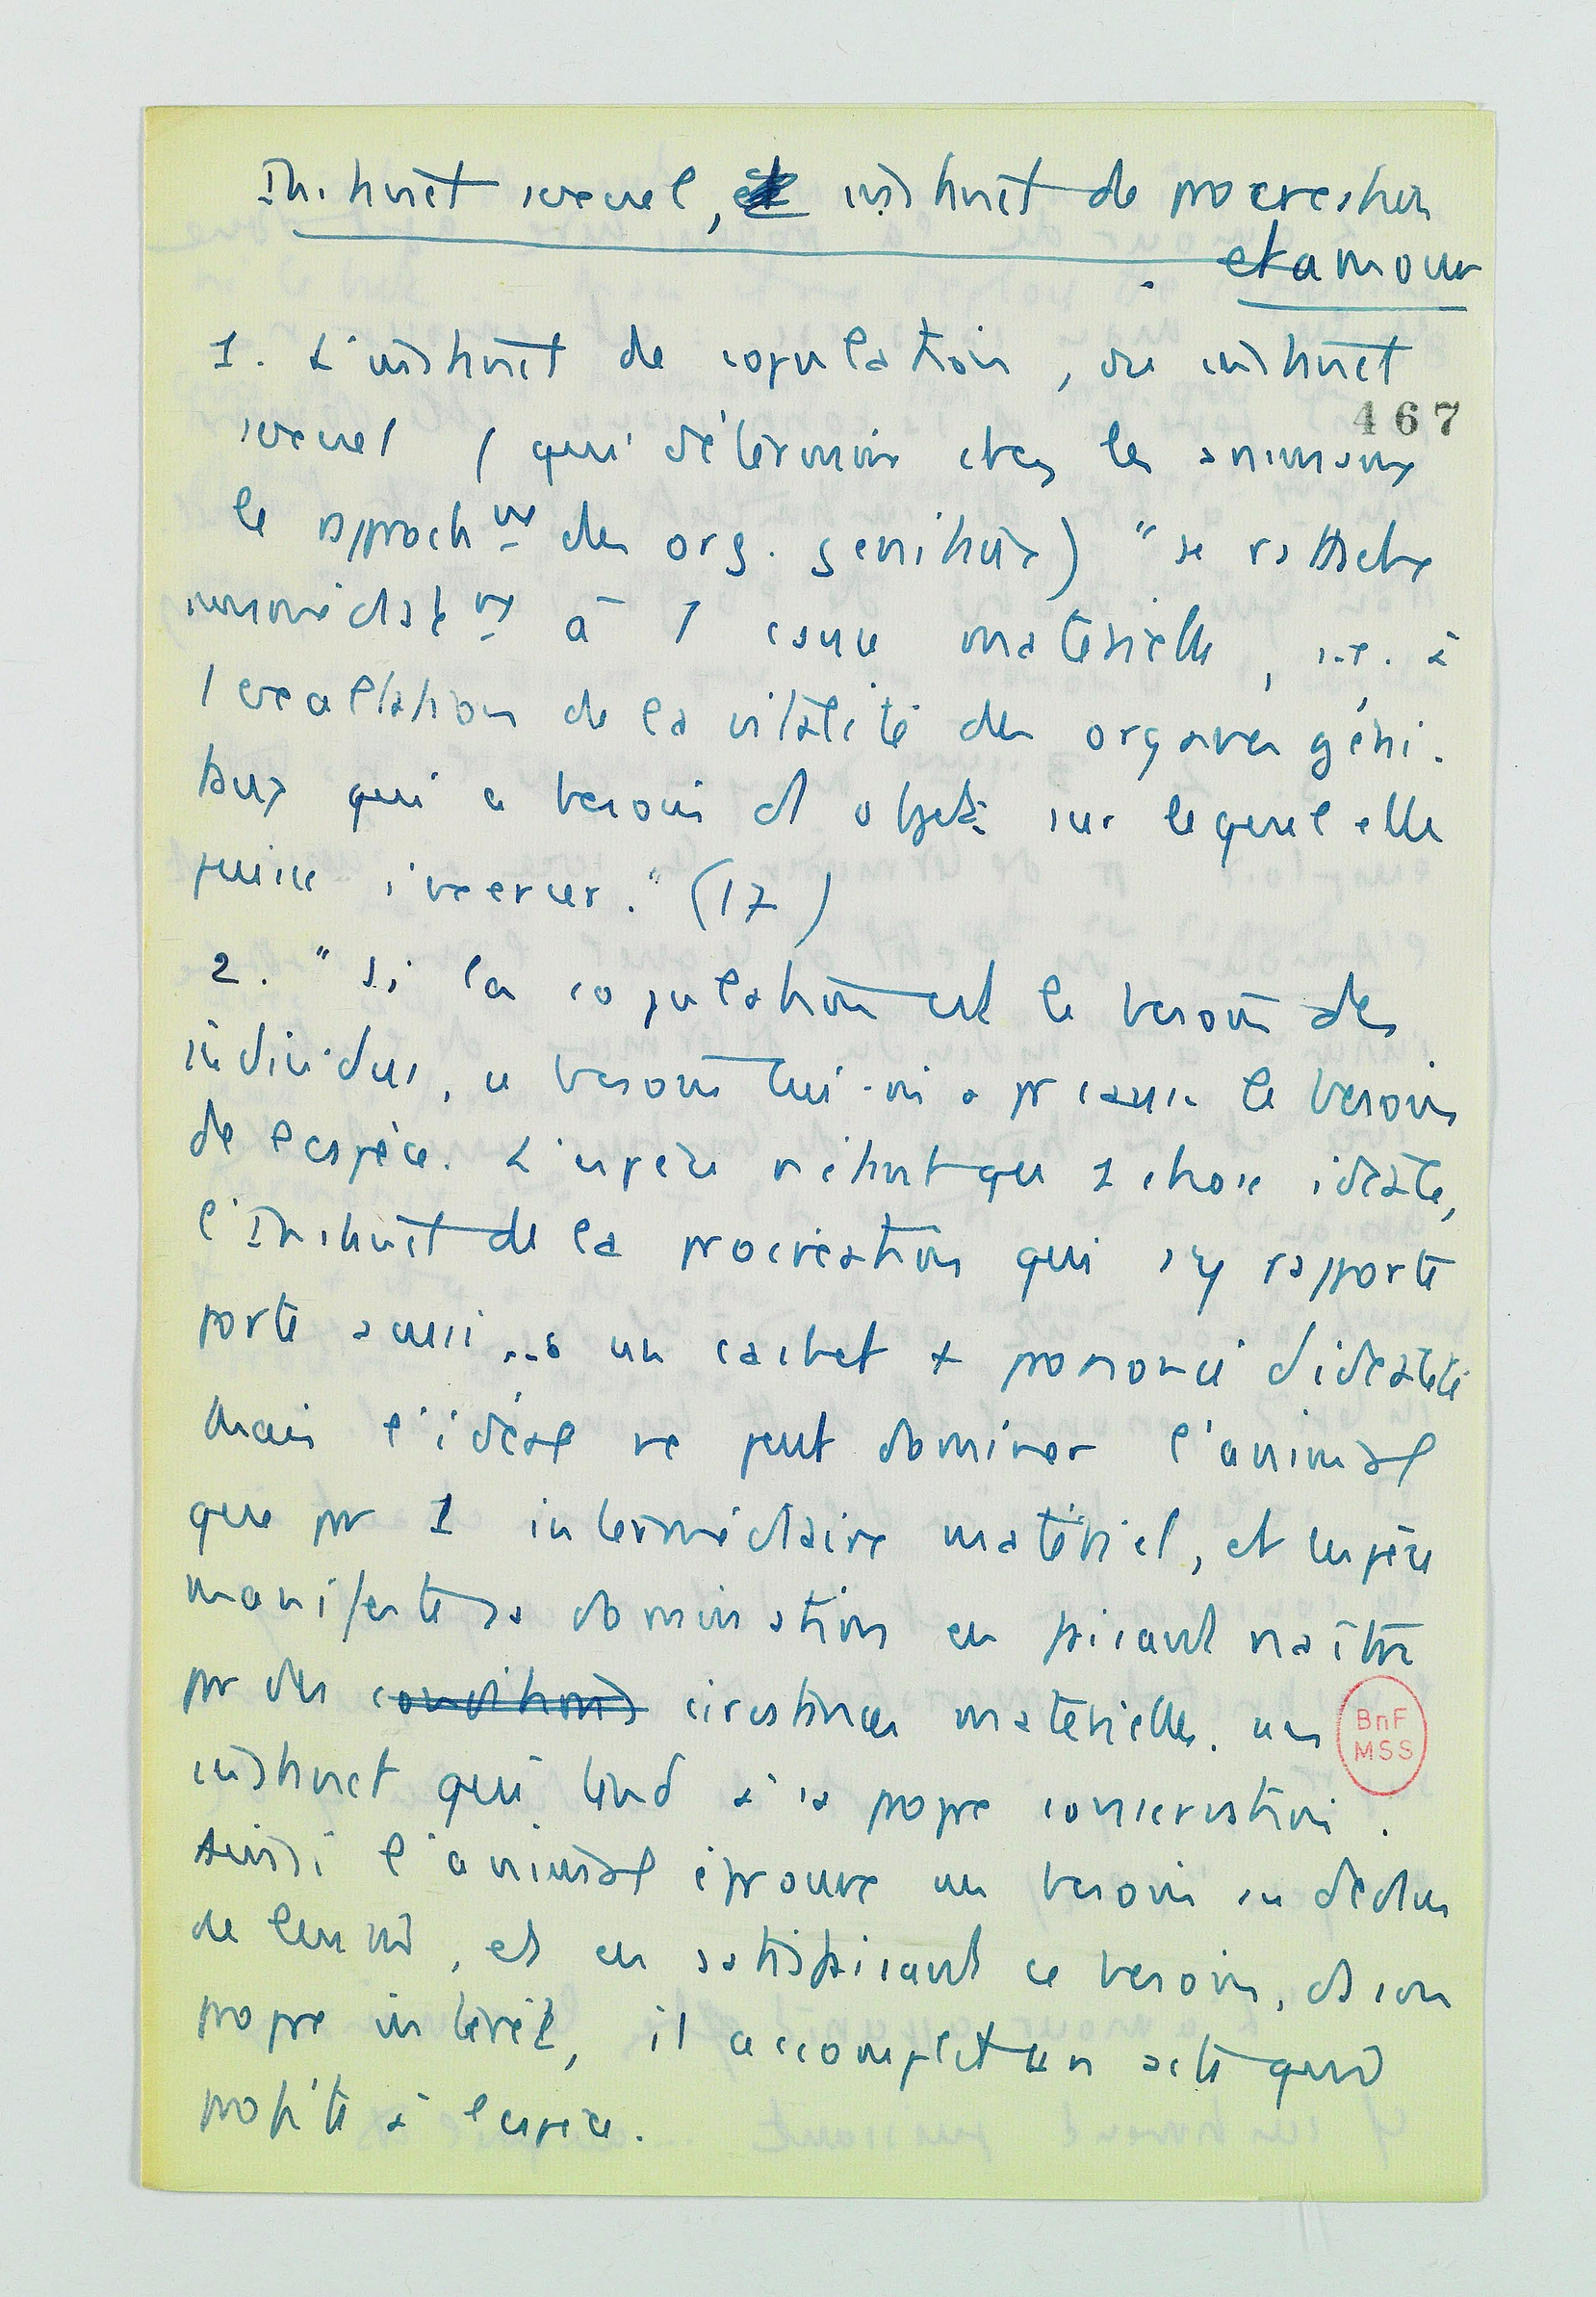 Instinct sexuel, instinct de procréation
et amour
1. L'instinct de copulation, ou instinct
467
sexuel (qui détermine chez les animaux
le rapprochnt des org. genitaux) "se rattache
immédiatnt à 1 cause matérielle, i.e. à
l exaltation de la vitalité des organes géni-
taux qui a besoin d objet sur lequel elle
puisse s'exercer." (17)
2. "Si la copulation est le besoin des
individus, ce besoin lui-m a pr cause le besoin
de l espèce. L'espèce n'étant que 1 chose idéale,
l'Instinct de la procréation qui s'y rapporte
porte aussi ... un cachet + prononcé d'idéalité
Mais l'idéal ne peut dominer l'animal
que pr 1 intermédiaire matériel, et l espèce
manifeste sa domination en faisant naître
pr des conditions circstances matérielles. un
BnF
MSS
instinct qui tend à sa propre conservation.
Ainsi l'animal éprouve un besoin au dedans
de lui m, et en satisfaisant ce besoin, ds son
propre intérêt, il accomplit un acte qui
profite à l espèce.